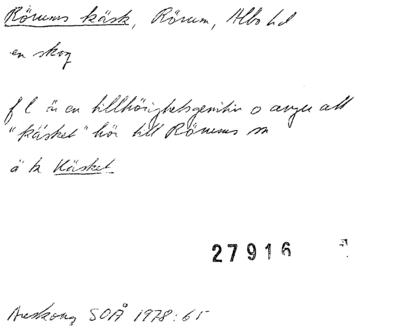 Rörums käsk, Rörum, Albo hd
en skog
f l är en tillhörighetsgenitiv o anger att
"käsket" hör till Rörums sn
ä b Käsket
27916
SOÅ 1978:65